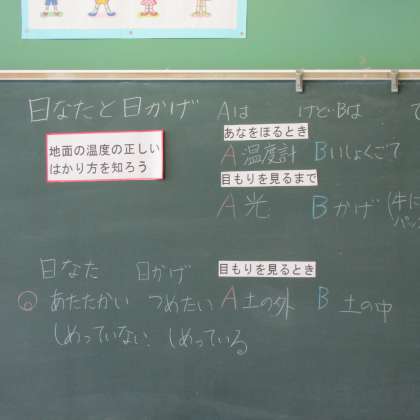 日なたと日かげ
地面の温度の正しい
はかり方を知ろう
Aは けど・Bは
あなをほるとき
A 温度計 B いしょくごて
目もりを見るまで
A 光 B かげ (牛に
パッ
日なた 日かげ
あたたかい つめたい
しめっていない しめっている
目もりを見るとき
A 土の外 B 土の中